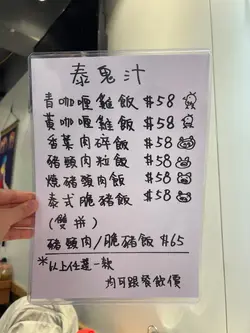 泰鬼汁
青咖喱雞飯 $58
黃咖喱雞飯 $58
香葉肉碎飯 $58
豬頸肉粒飯 $58
燒豬頸肉飯 $58
泰式脆豬飯 $58
(雙拼)
豬頸肉/脆豬飯 $65
*以上任選一款
均可跟餐飲價